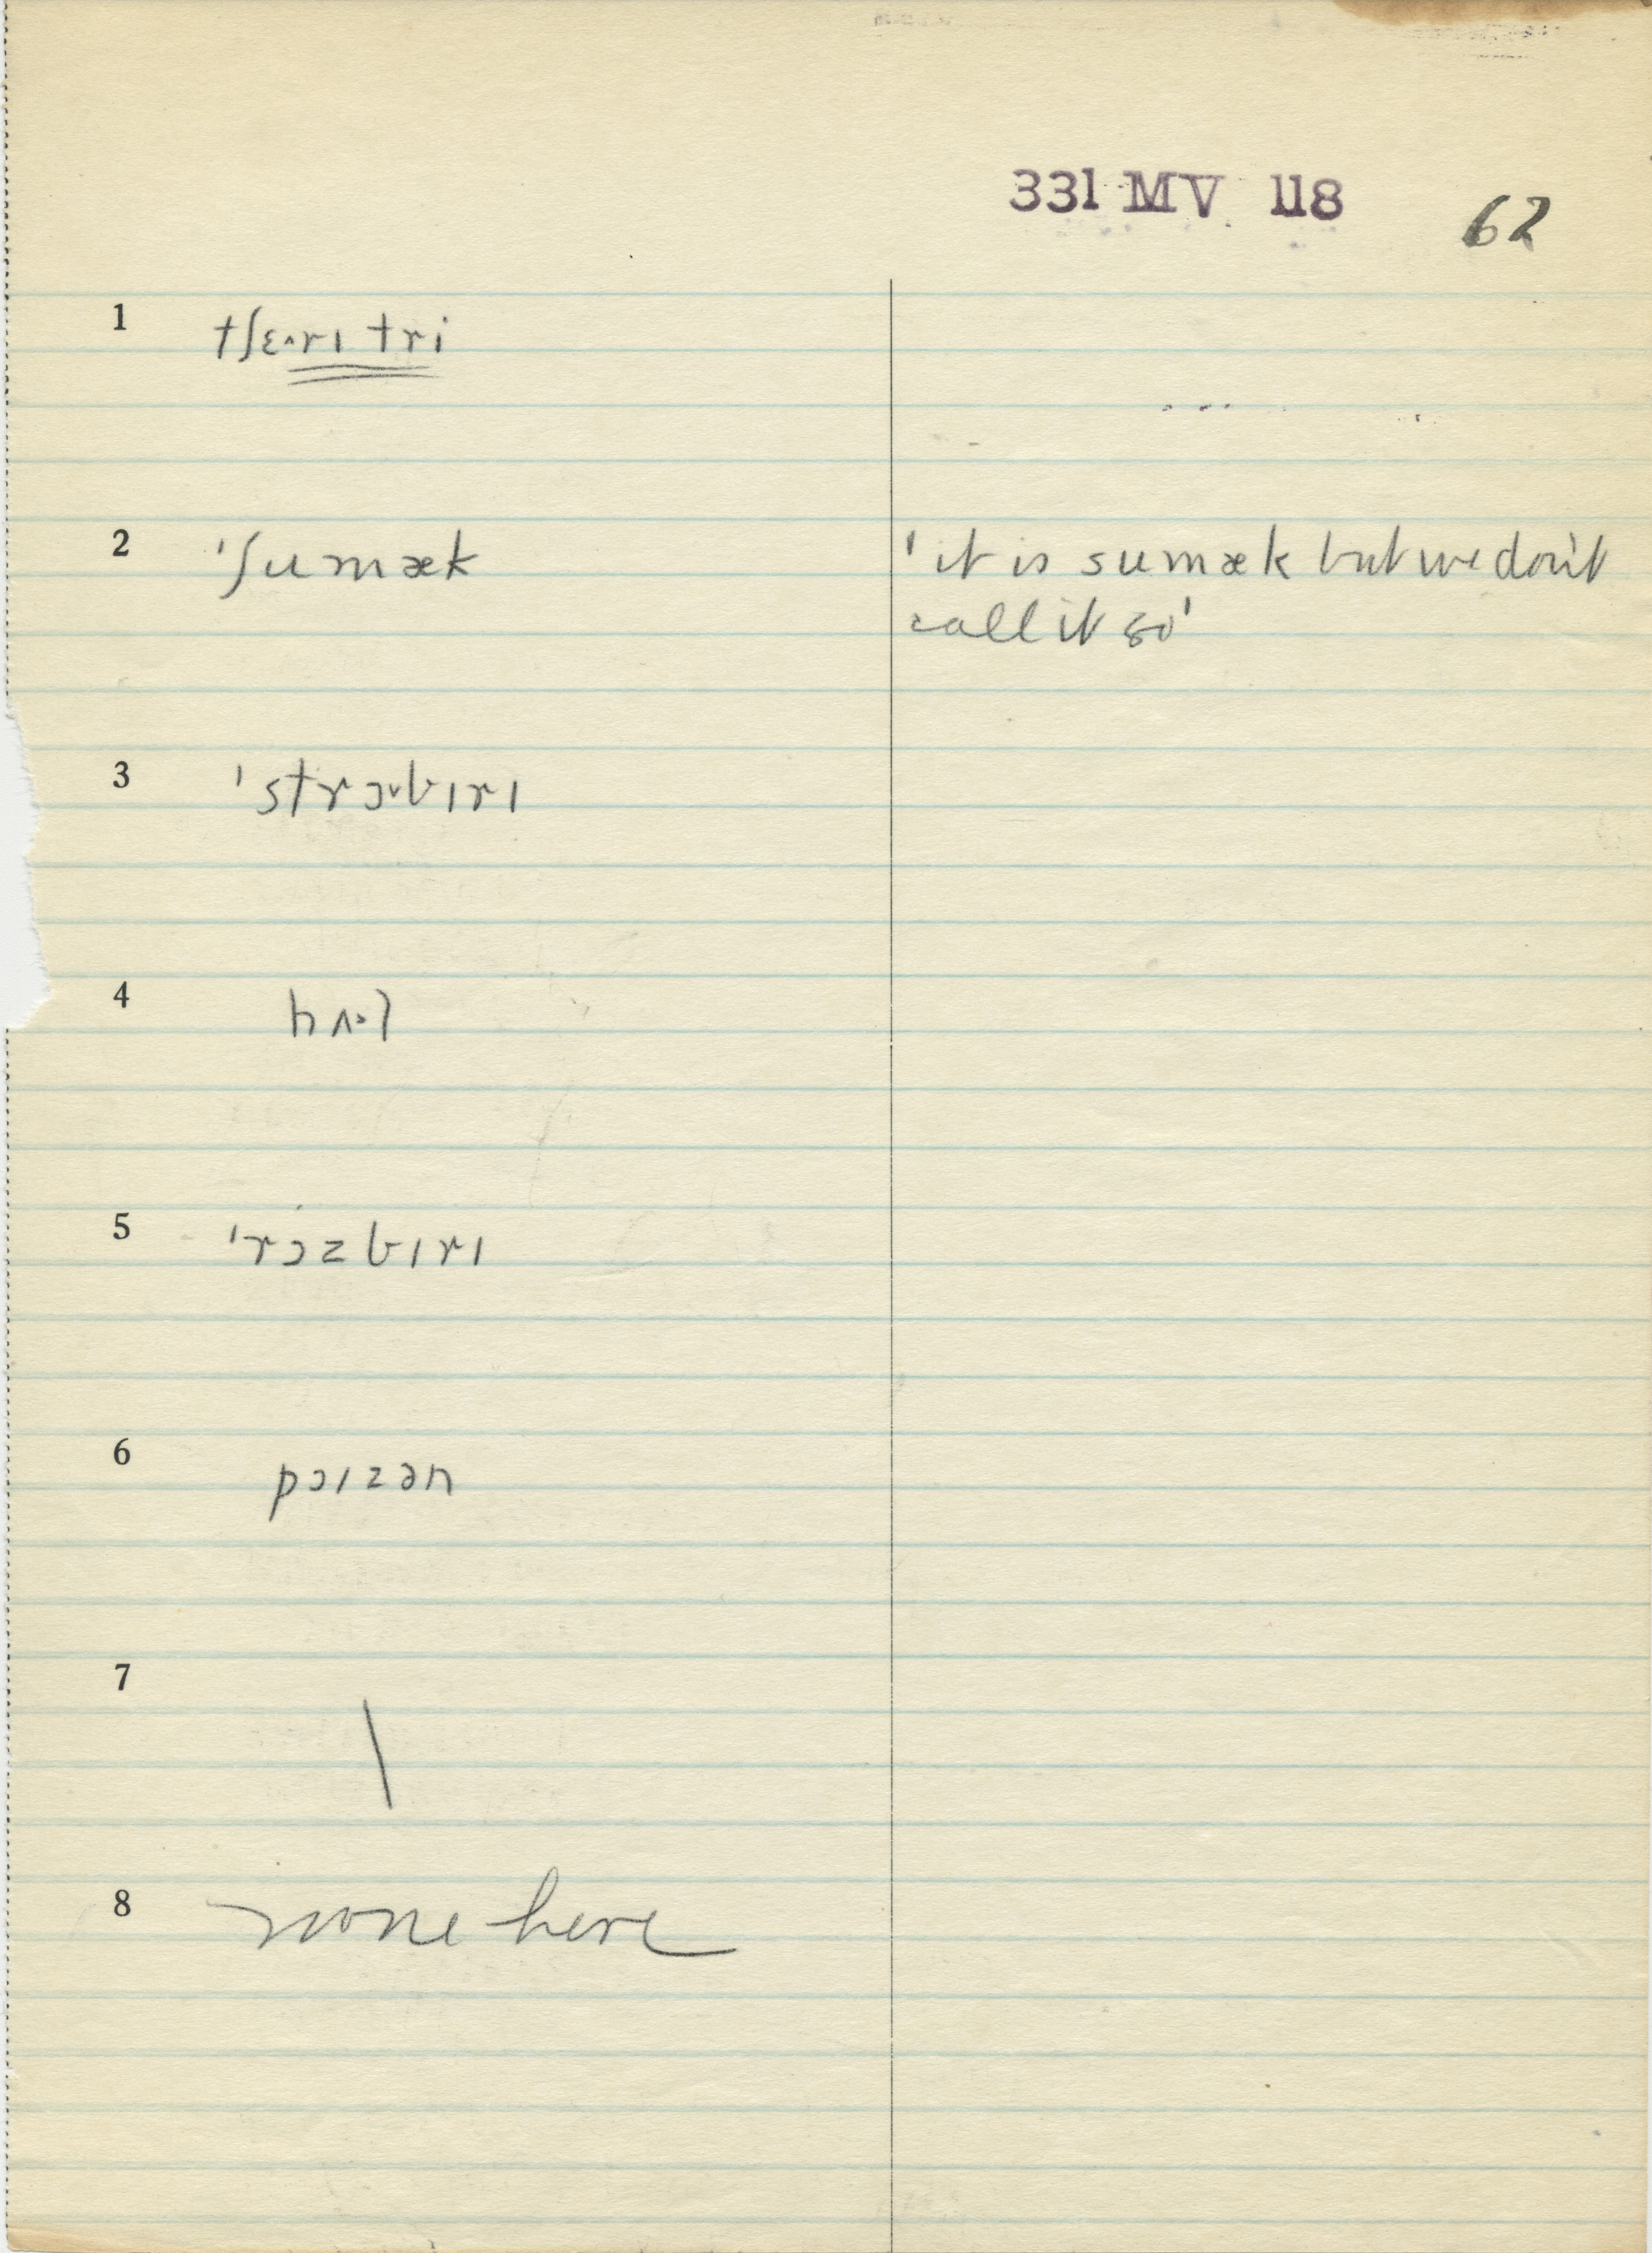 331 MV 118 62
1 tʃɛ·ᵊrɪ tri
2 ˈʃumæk 'it is sumæk but we don't
call it so'
3 ˈstrɔ·bɪrɪ
4 hʌ·l
5 ˈrɔzbɪrɪ
6 pɔɪzən
7 \
8 none here